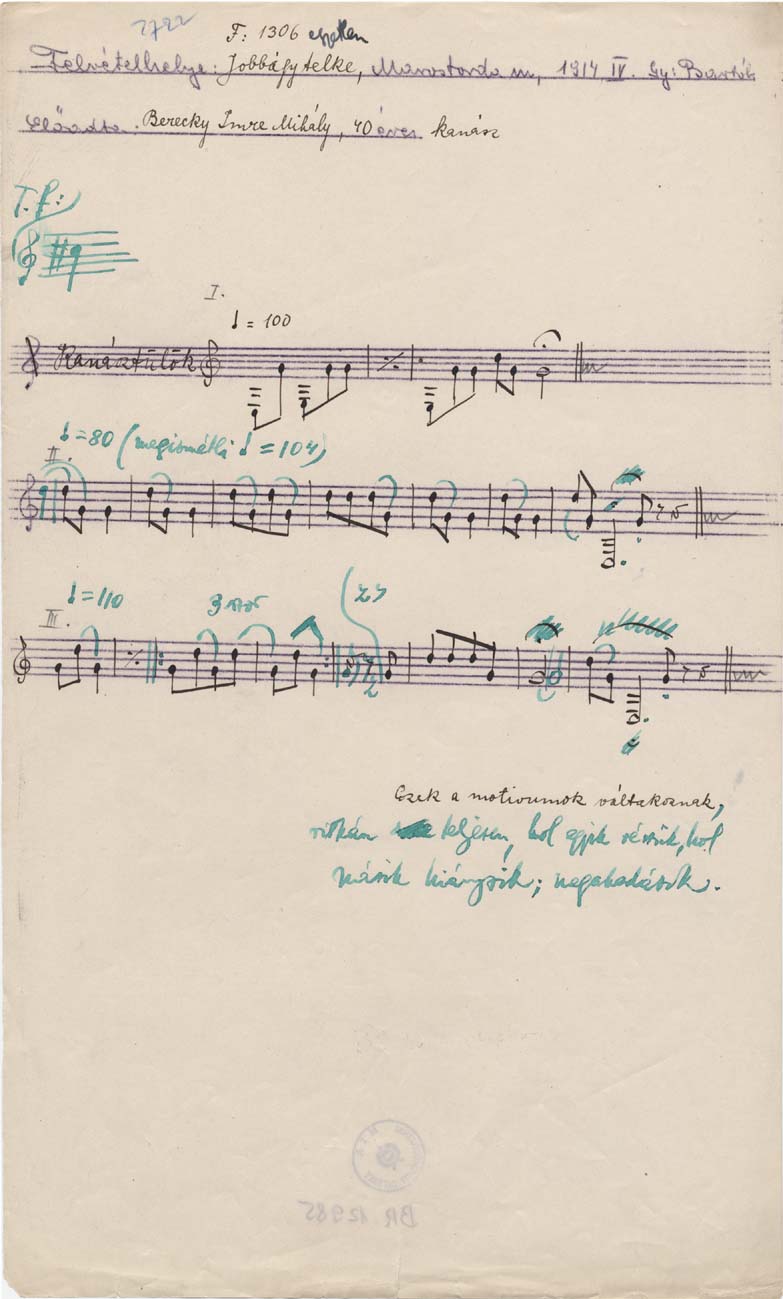 2722
F: 1306
Felvételhelye: Jobbágytelke, Marostorda m, 1914 IV. Gy: Bartók
Előadta: Berecky Imre Mihály, 40 éves kanász
T. f:
I.
= 100
Kanásztülök
= 80 (megismétli = 104)
II.
= 110
III.
Ezek a motivumok váltakoznak,
ritkán teljesen, hol egyik részük, hol
másik hiányzik; megakadások.
BR 12985